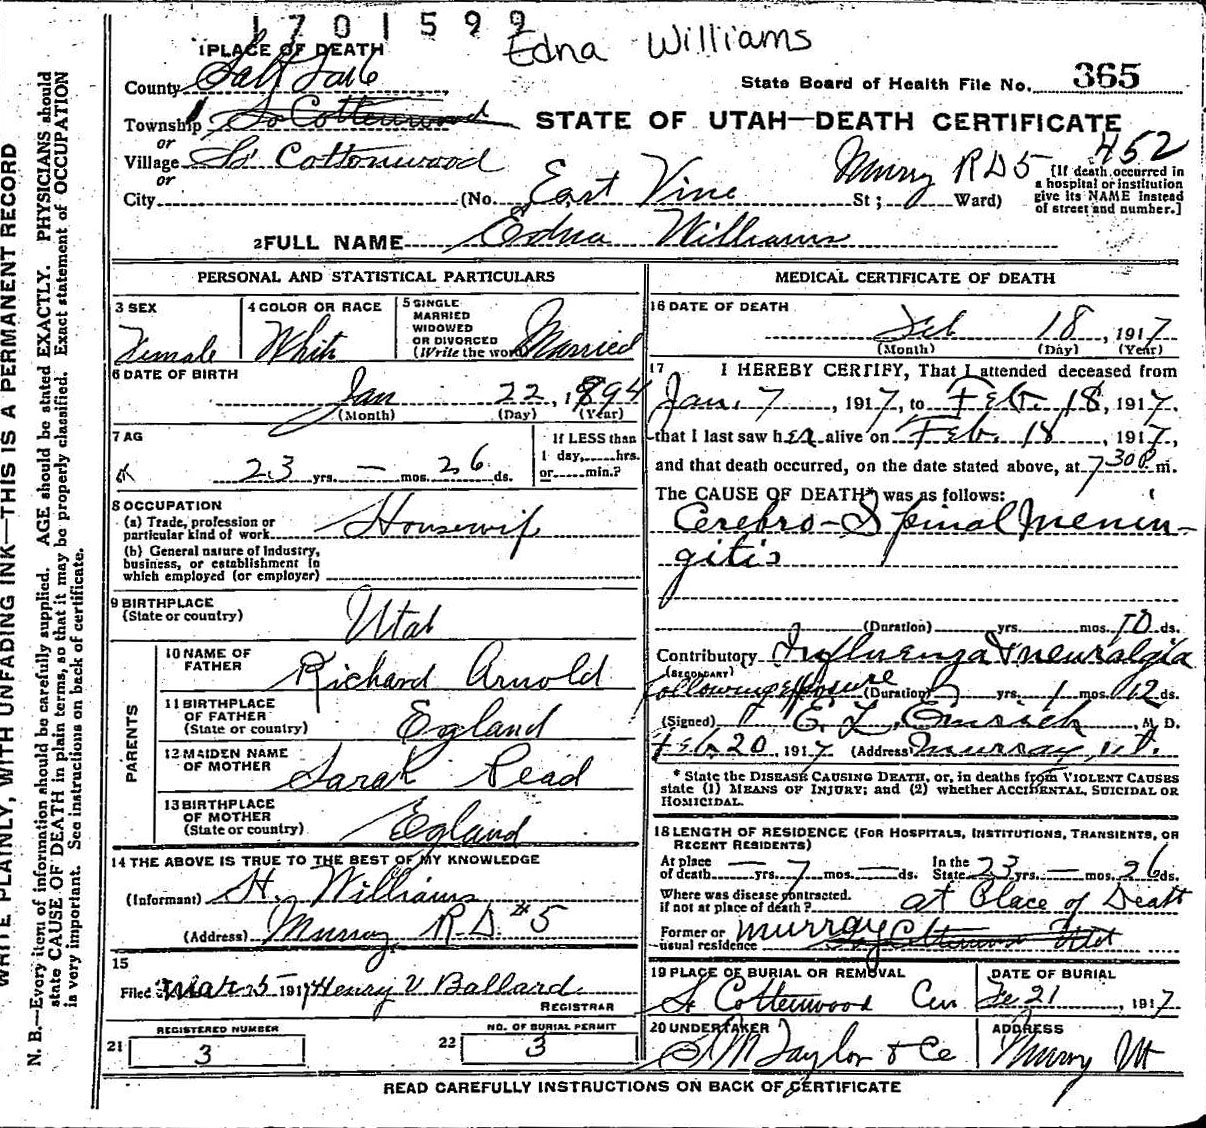 1701599
Edna Williams
1 PLACE OF DEATH
County Salt Lake
State Board of Health File No. 365
Township So Cottonwood
STATE OF UTAH—DEATH CERTIFICATE
452
or
Village So Cottonwood
or
City (No. East Vine St; Murry RD5 Ward)
[If death occurred in
a hospital or institution
give its NAME instead
of street and number.]
2 FULL NAME Edna Williams
PERSONAL AND STATISTICAL PARTICULARS
3 SEX
Female
4 COLOR OR RACE
White
5 SINGLE
MARRIED
WIDOWED
OR DIVORCED
(Write the word) Married
6 DATE OF BIRTH
Jan 22, 1894
(Month) (Day) (Year)
7 AG
23 yrs. — mos. 26 ds.
If LESS than
1 day, hrs.
or min.?
8 OCCUPATION
(a) Trade, profession or
particular kind of work Housewif
(b) General nature of Industry,
business, or establishment in
which employed (or employer)
9 BIRTHPLACE
(State or country) Utah
PARENTS
10 NAME OF
FATHER Richard Arnold
11 BIRTHPLACE
OF FATHER
(State or country) Egland
12 MAIDEN NAME
OF MOTHER Sarah Read
13 BIRTHPLACE
OF MOTHER
(State or country) Egland
14 THE ABOVE IS TRUE TO THE BEST OF MY KNOWLEDGE
(Informant) H. Williams
(Address) Murray R D #5
15
Filed Mar 5 1917 Henry V Ballard
REGISTRAR
21 REGISTERED NUMBER
3
22 NO. OF BURIAL PERMIT
3
MEDICAL CERTIFICATE OF DEATH
16 DATE OF DEATH
Feb 18, 1917
(Month) (Day) (Year)
17 I HEREBY CERTIFY, That I attended deceased from
Jan. 7, 1917, to Feb. 18, 1917,
that I last saw her alive on Feb. 18, 1917,
and that death occurred, on the date stated above, at 7 30 P m.
The CAUSE OF DEATH* was as follows:
Cerebro-Spinal Menin-
gitis
(Duration) yrs. mos. 10 ds.
Contributory Influenza & neuralgia
(SECONDARY)
following exposure (Duration) yrs. 1 mos. 12 ds.
(Signed) E. L. Emrich M. D.
Feb. 20 1917 (Address) Murray, Ut.
* State the DISEASE CAUSING DEATH, or, in deaths from VIOLENT CAUSES
state (1) MEANS OF INJURY; and (2) whether ACCIDENTAL, SUICIDAL OR
HOMICIDAL.
18 LENGTH OF RESIDENCE (FOR HOSPITALS, INSTITUTIONS, TRANSIENTS, OR
RECENT RESIDENTS)
At place
of death — yrs. 7 mos. — ds.
In the
State 23 yrs. — mos. 26 ds.
Where was disease contracted.
if not at place of death? at Place of Death
Former or
usual residence Murray So Cottonwood Utah
19 PLACE OF BURIAL OR REMOVAL
So Cottonwood Cem
DATE OF BURIAL
Fe 21, 1917
20 UNDERTAKER
S M Taylor & Co
ADDRESS
Murry Ut
READ CAREFULLY INSTRUCTIONS ON BACK OF CERTIFICATE
WRITE PLAINLY, WITH UNFADING INK—THIS IS A PERMANENT RECORD
N. B.—Every item of information should be carefully supplied. AGE should be stated EXACTLY. PHYSICIANS should
state CAUSE OF DEATH in plain terms, so that it may be properly classified. Exact statement of OCCUPATION
is very important. See instructions on back of certificate.